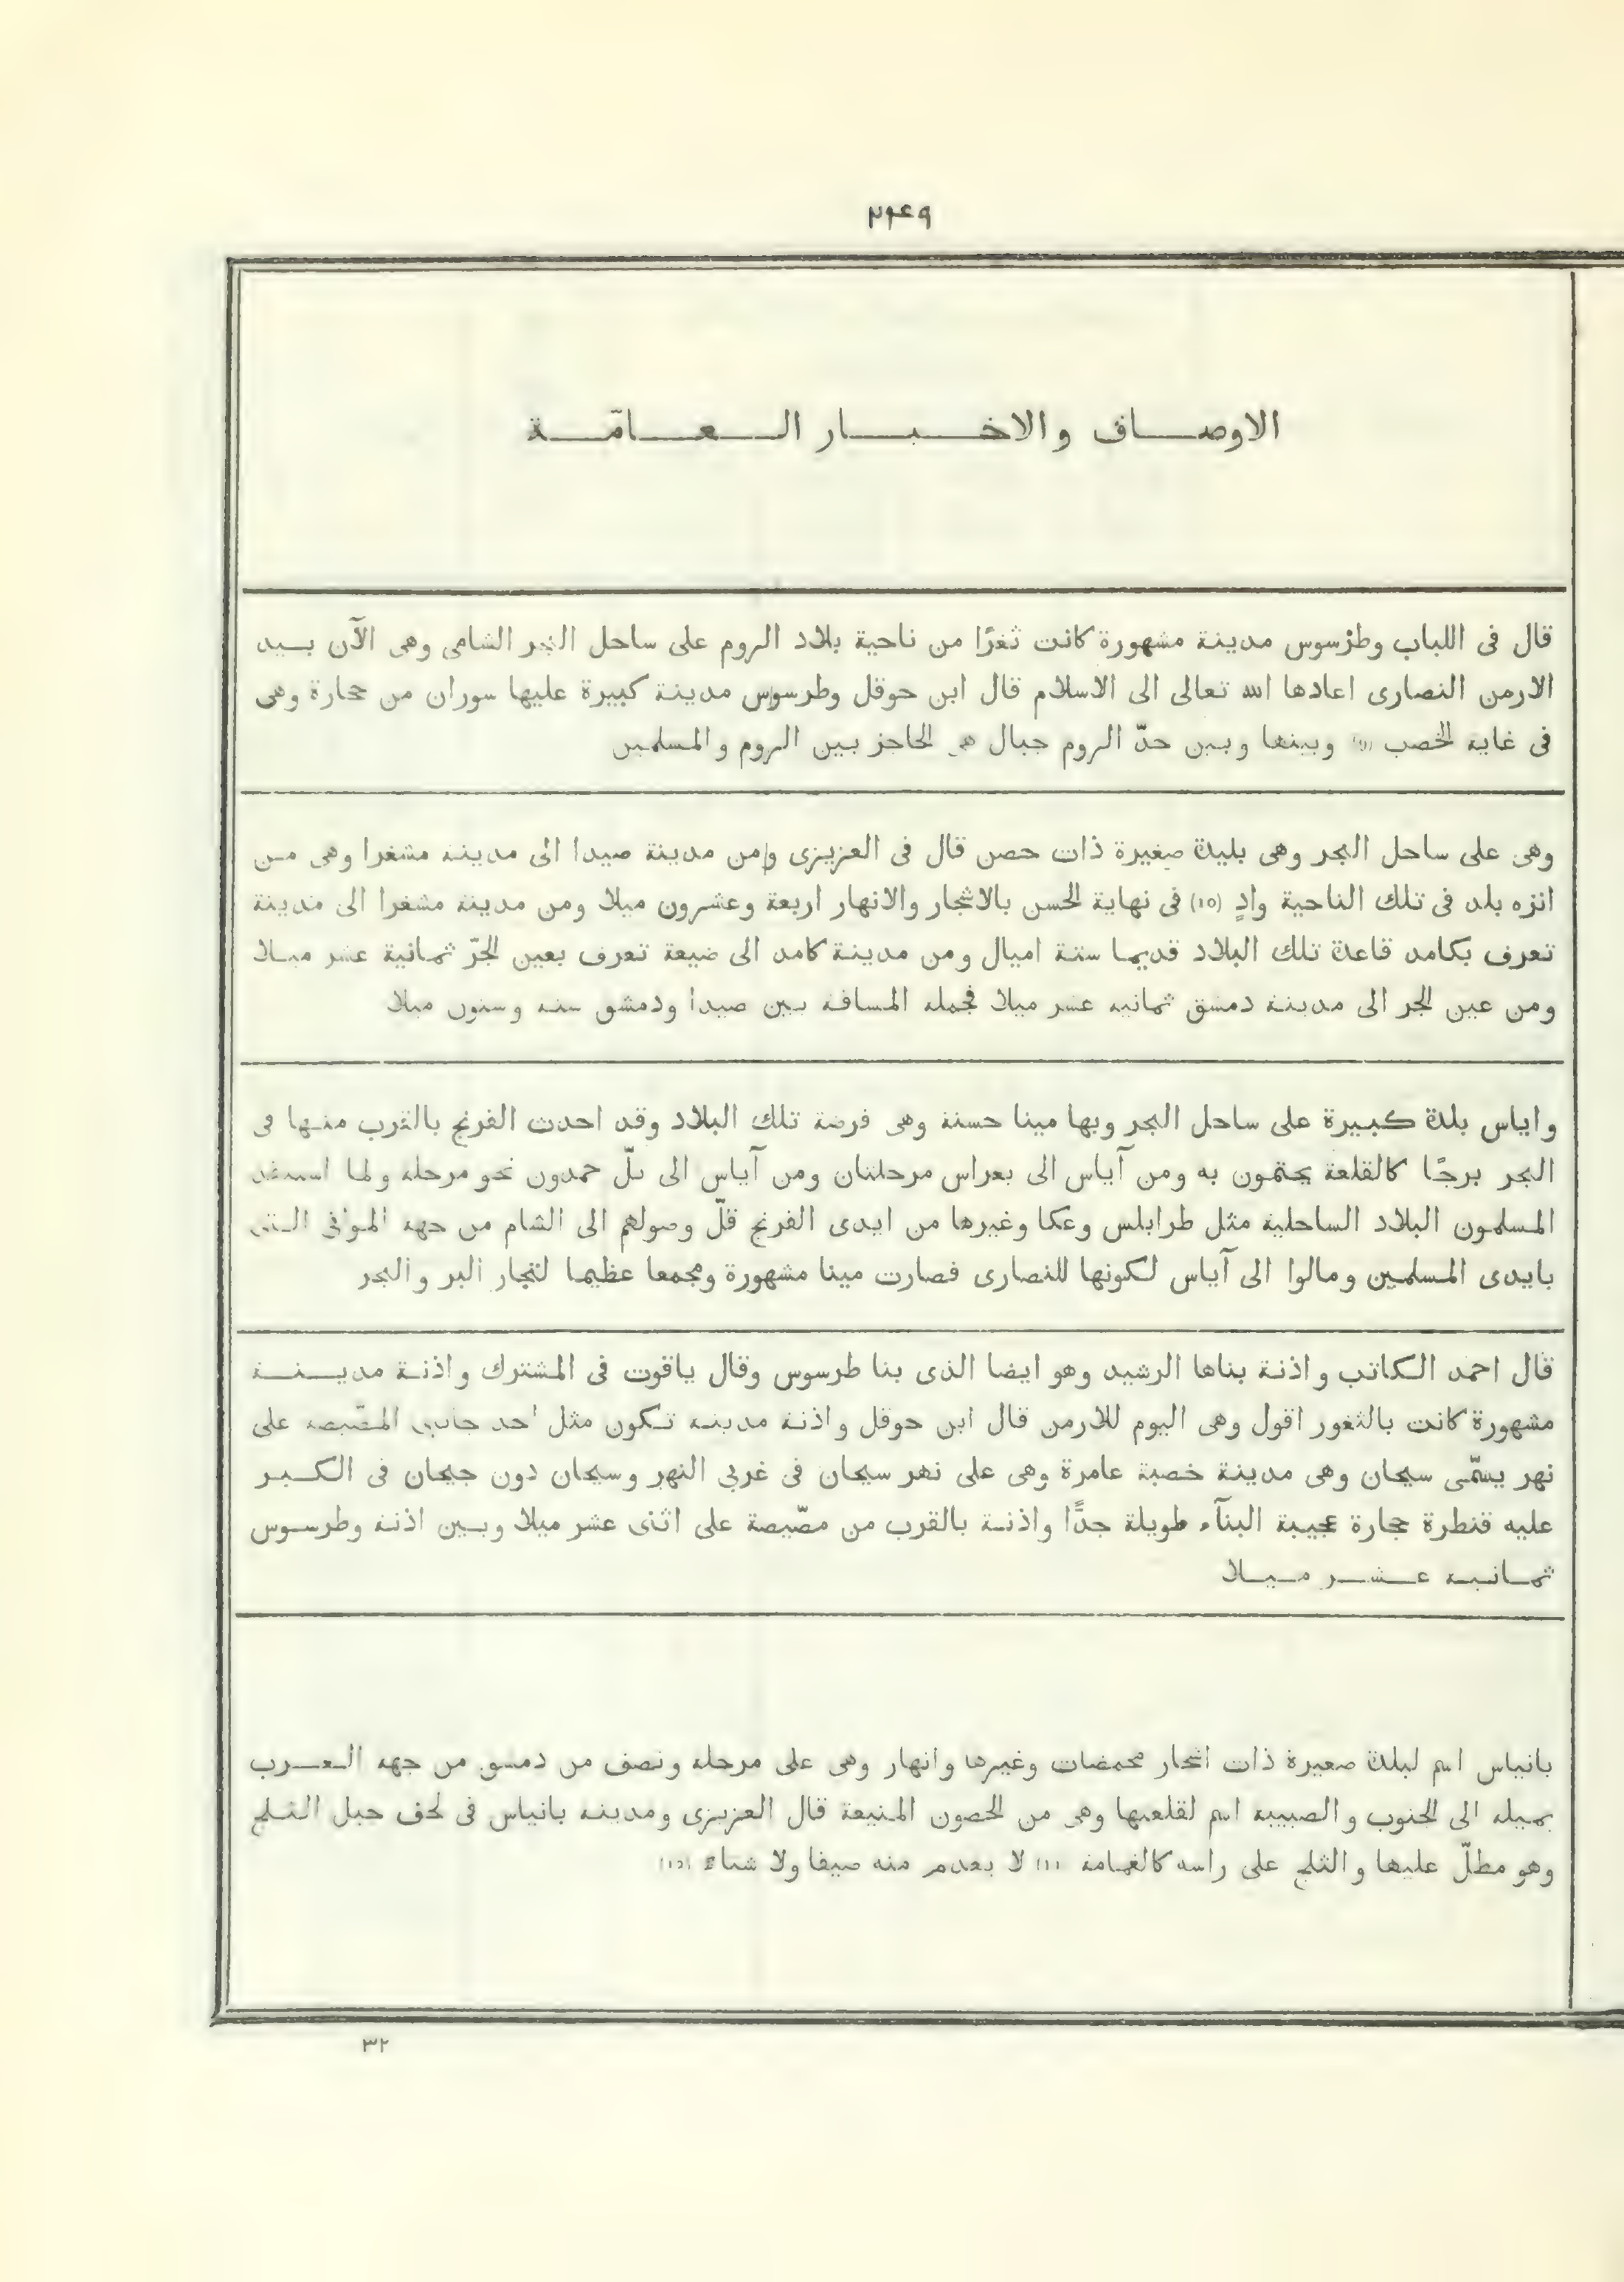 ٢٤٩
الاوصاف والاخبار العامّة
قال فى اللباب وطرْسوس مدينة مشهورة كانت ثغرًا من ناحية بلاد الروم على ساحل البحر الشامى وهى الآن بيد
الارمن النصارى اعادها الله تعالى الى الاسلام قال ابن حوقل وطرسوس مدينة كبيرة عليها سوران من حجارة وهى
فى غاية الخصب وبينها وبين حدّ الروم جبال هى الحاجز بين الروم والمسلمين
وهى على ساحل البحر وهى بليدة صغيرة ذات حصن قال فى العزيزى ومن مدينة صيدا الى مدينة مشغرا وهى من
انزه بلد فى تلك الناحية وادٍ (١٥) فى نهاية الحسن بالاشجار والانهار اربعة وعشرون ميلا ومن مدينة مشغرا الى مدينة
تعرف بكامد قاعدة تلك البلاد قديما ستة اميال ومن مدينة كامد الى ضيعة تعرف بعين الجرّ ثمانية عشر ميلا
ومن عين الجر الى مدينة دمشق ثمانية عشر ميلا فجملة المسافة بين صيدا ودمشق ستة وستون ميلا
واياس بلدة كبيرة على ساحل البحر وبها مينا حسنة وهى فرضة تلك البلاد وقد احدث الفرنج بالقرب منها فى
البحر برجًا كالقلعة يحتمون به ومن آياس الى بغراس مرحلتان ومن آياس الى تلّ حمدون نحو مرحلة ولما استنقذ
المسلمون البلاد الساحلية مثل طرابلس وعكا وغيرها من ايدى الفرنج قلّ وصولهم الى الشام من جهة الموانى التى
بايدى المسلمين ومالوا الى آياس لكونها للنصارى فصارت مينا مشهورة ومجمعا عظيما لتجار البر والبحر
قال احمد الكاتب واذنة بناها الرشيد وهو ايضا الذى بنا طرسوس وقال ياقوت فى المشترك واذنة مدينة
مشهورة كانت بالثغور اقول وهى اليوم للارمن قال ابن حوقل واذنة مدينة تكون مثل احد جانبى المصّيصة على
نهر يسمّى سيحان وهى مدينة خصبة عامرة وهى على نهر سيحان فى غربى النهر وسيحان دون جيحان فى الكبر
عليه قنطرة حجارة عجيبة البنآء طويلة جدًّا واذنة بالقرب من مصّيصة على اثنى عشر ميلا وبين اذنة وطرسوس
ثمانية عشر ميلا
بانياس اسم لبلدة صغيرة ذات اشجار محمضات وغيرها وانهار وهى على مرحلة ونصف من دمشق من جهة الغرب
بميلة الى الجنوب والصبيبة اسم لقلعتها وهى من الحصون المنيعة قال العزيزى ومدينة بانياس فى لحف جبل الثلج
وهو مطلّ عليها والثلج على راسه كالعمامة لا يعدم منه صيفا ولا شتاء
٣٢